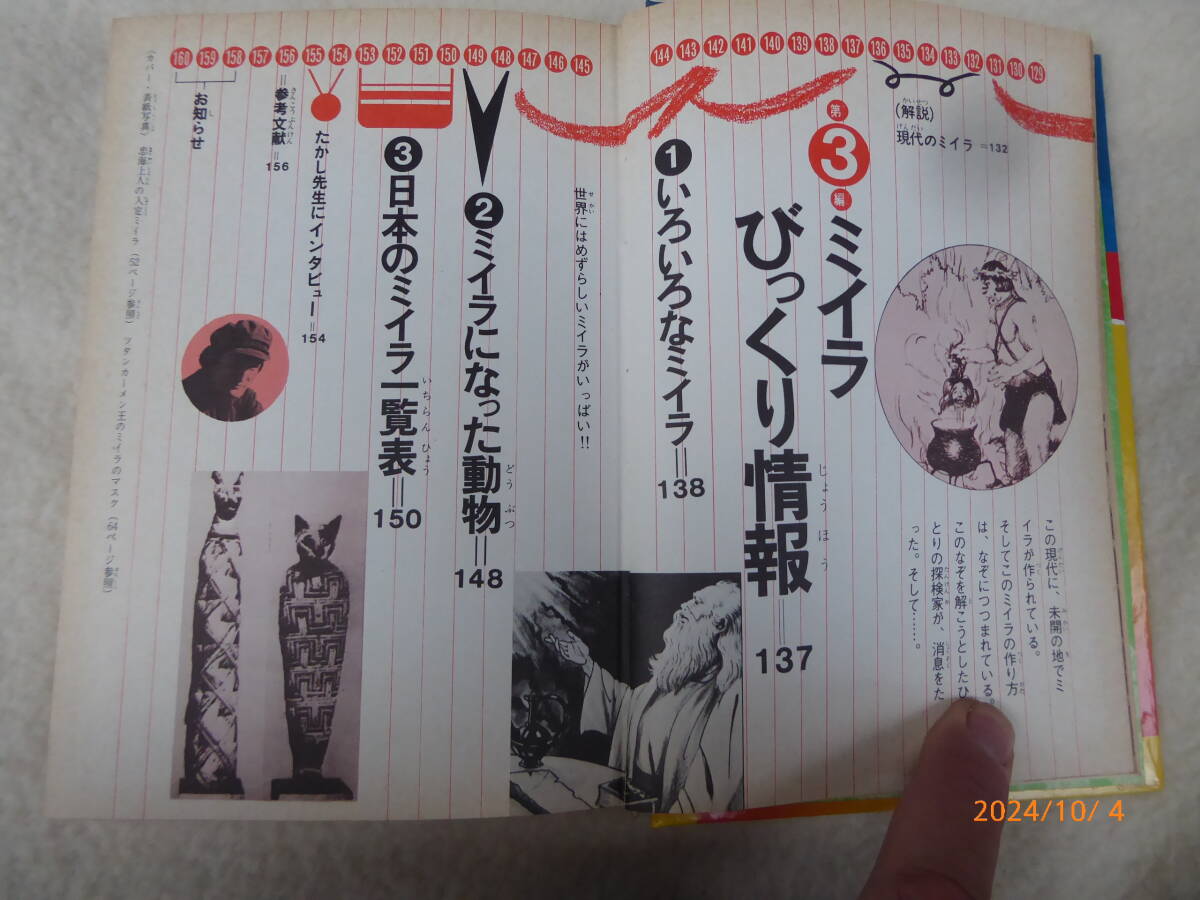 144 143 142 141 140 139 138 137 136 135 134 133 132 131 130 129
(解説)
現代のミイラ =132
この現代に、未開の地でミ
イラが作られている。
そしてこのミイラの作り方
は、なぞにつつまれている。
このなぞを解こうとしたひ
とりの探検家が、消息をた
った。そして……。
第3編 ミイラ
びっくり情報=137
❶いろいろなミイラ=138
160 159 158 157 156 155 154 153 152 151 150 149 148 147 146 145
世界にはめずらしいミイラがいっぱい!!
❷ミイラになった動物=148
❸日本のミイラ一覧表=150
たかし先生にインタビュー=154
=参考文献=156
お知らせ
(カバー・表紙写真) 忠海上人の入定ミイラ (52ページ参照) ツタンカーメン王のミイラのマスク (64ページ参照)
2024/10/ 4